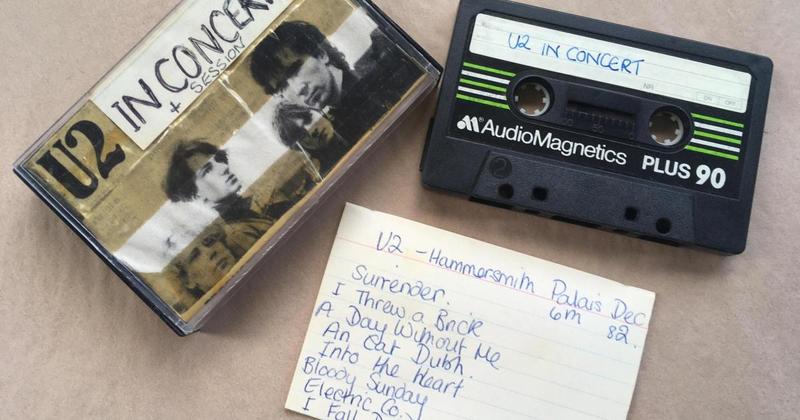 U2
IN CONCERT
+ SESSION
U2 IN CONCERT
NR
ON OFF
AudioMagnetics
PLUS 90
2
U2 - Hammersmith Palais Dec
6th 82.
Surrender.
I Threw a Brick
A Day Without Me
An Cat Dubh.
Into the Heart
Bloody Sunday
Electric Co.
I Fall